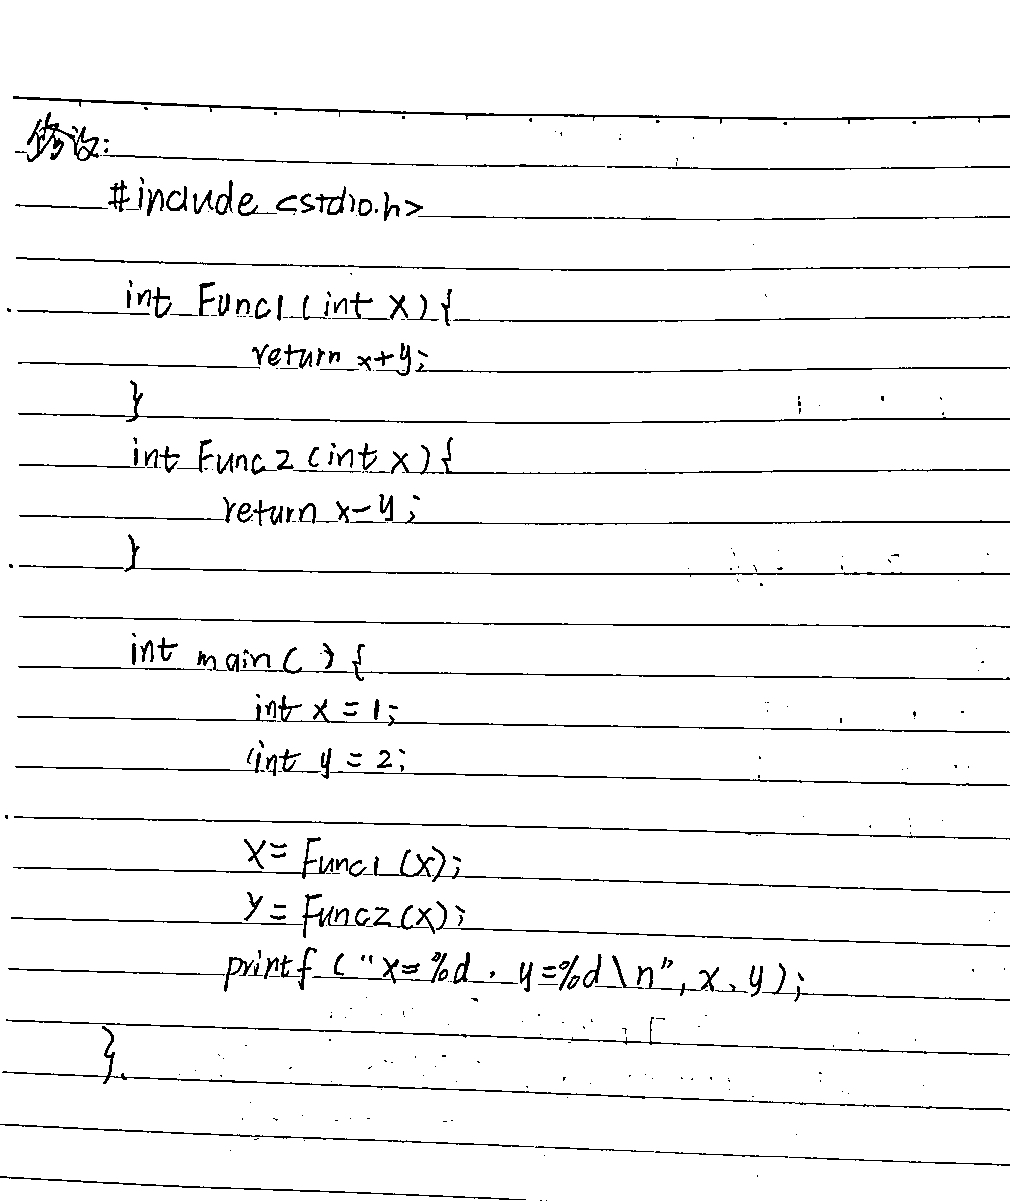 修改:
#include <stdio.h>
int Func1(int x){
return x+y;
}
int Func2(int x){
return x-y;
}
int main(){
int x=1;
int y=2;
x=Func1(x);
y=Func2(x);
printf("x=%d, y=%d\n", x, y);
}.